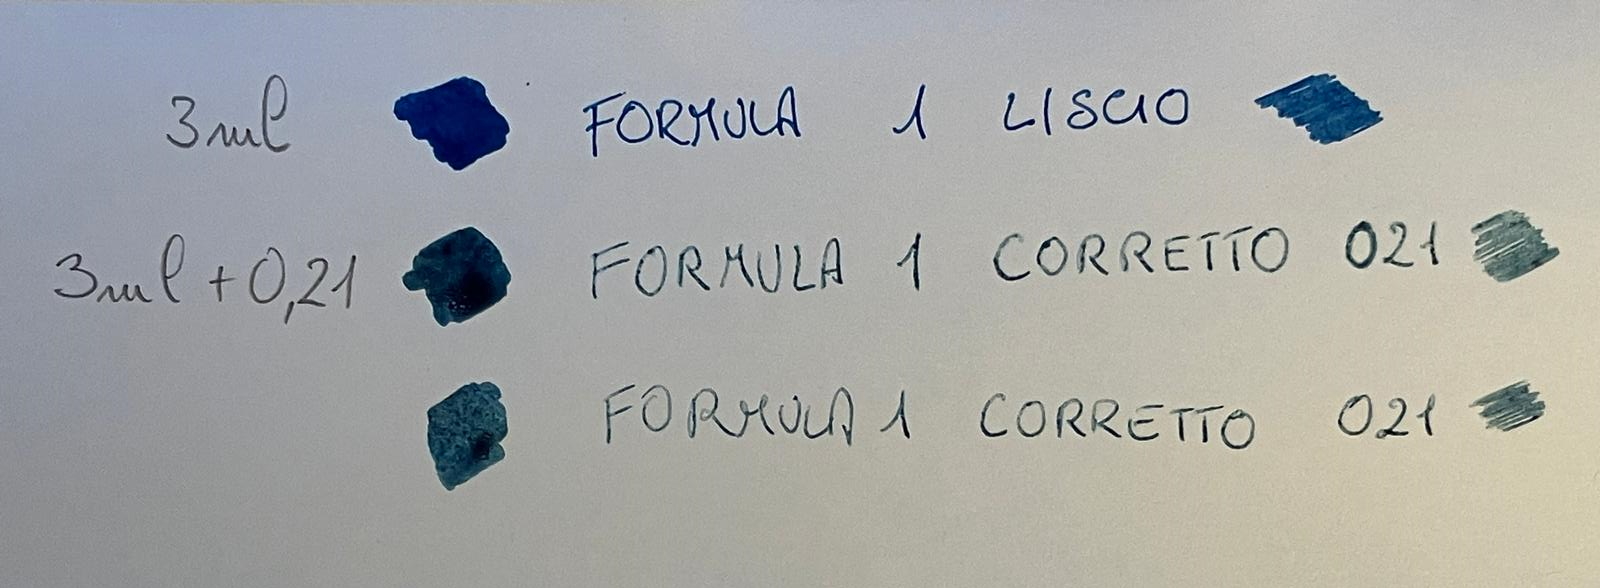 3ml FORMULA 1 LISCIO
3ml + 0,21 FORMULA 1 CORRETTO 021
FORMULA 1 CORRETTO 021